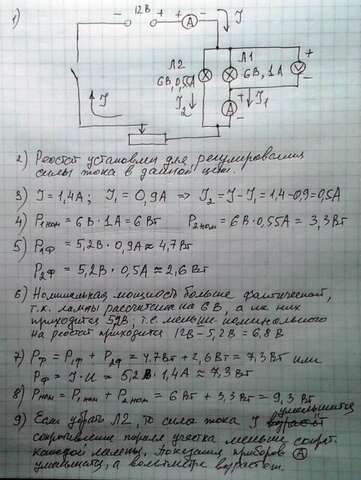 1)
- 12В + + А - I
Л2 6В, 0,55А
Л1 6В, 1А
+ V -
I
I₂
+ А - I₁
2) Реостат установили для регулирования
силы тока в данной цепи.
3) I = 1,4А; I₁ = 0,9А ⇒ I₂ = I - I₁ = 1,4 - 0,9 = 0,5А
4) P₁ном = 6В · 1А = 6Вт P₂ном = 6В · 0,55А = 3,3Вт
5) P₁ф = 5,2В · 0,9А ≈ 4,7Вт
P₂ф = 5,2В · 0,5А ≈ 2,6Вт
6) Номинальная мощность больше фактической,
т.к. лампы рассчитаны на 6В, а на них
приходится 5,2В, т.е. меньше номинального
на реостат приходится 12В - 5,2В = 6,8В
7) Pф = P₁ф + P₂ф = 4,7Вт + 2,6Вт = 7,3Вт или
Pф = I · U = 5,2В · 1,4А ≈ 7,3Вт
8) Pном = P₁ном + P₂ном = 6Вт + 3,3Вт = 9,3Вт
9) Если убрать Л2, то сила тока I уменьшится
сопротивление паралл участка меньше сопрот.
каждой лампы. Показания приборов А
уменьшатся, а вольтметра возрастет.